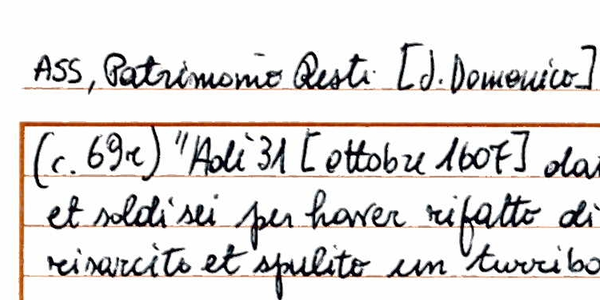 ASS, Patrimonio Resti [S. Domenico]
(c. 69r) "Adì 31 [ottobre 1607]
et soldi sei per haver rifatto di
risarcito et spulito un